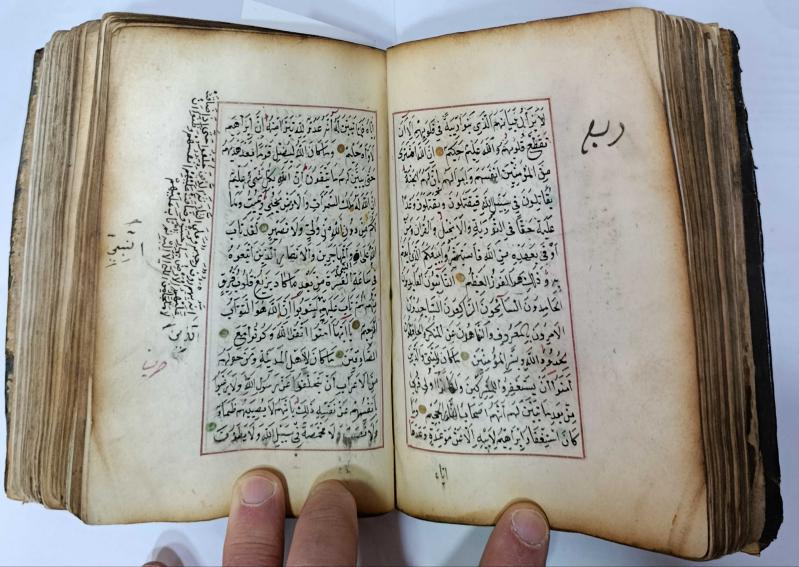 ربع
لا يزال بنيانهم الذي بنوا ريبة في قلوبهم الا ان
تقطع قلوبهم والله عليم حكيم ان الله اشترى
من المؤمنين انفسهم واموالهم بان لهم الجنة
يقاتلون في سبيل الله فيقتلون ويقتلون وعدا
عليه حقا في التورية والانجيل والقران ومن
اوفى بعهده من الله فاستبشروا ببيعكم الذي
به وذلك هو الفوز العظيم التائبون العابدون
الحامدون السائحون الراكعون الساجدون
الامرون بالمعروف والناهون عن المنكر
لحدود الله وبشر المؤمنين ما كان للنبي والذين
امنوا ان يستغفروا للمشركين ولو كانوا اولي قربى
من بعد ما تبين لهم انهم اصحاب الجحيم وما
كان استغفار ابراهيم لابيه الا عن موعدة وعدها
اياه
اياه فلما تبين له انه عدو لله تبرا منه ان ابراهيم
لاواه حليم وما كان الله ليضل قوما بعد اذ هديهم
حتى يبين لهم ما يتقون ان الله بكل شيء عليم
ان الله له ملك السموات والارض يحيي ويميت وما
لكم من دون الله من ولي ولا نصير لقد تاب
والمهاجرين والانصار الذين اتبعوه
في ساعة العسرة من بعد ما كاد يزيغ قلوب فريق
عليهم ليتوبوا ان الله هو التواب
الرحيم يا ايها الذين امنوا اتقوا الله وكونوا مع
الصادقين ما كان لاهل المدينة ومن حولهم
من الاعراب ان يتخلفوا عن رسول الله ولا يرغبوا
بانفسهم عن نفسه ذلك بانهم لا يصيبهم ظماء
ولا نصب ولا مخمصة في سبيل الله ولا يطؤن
حزب